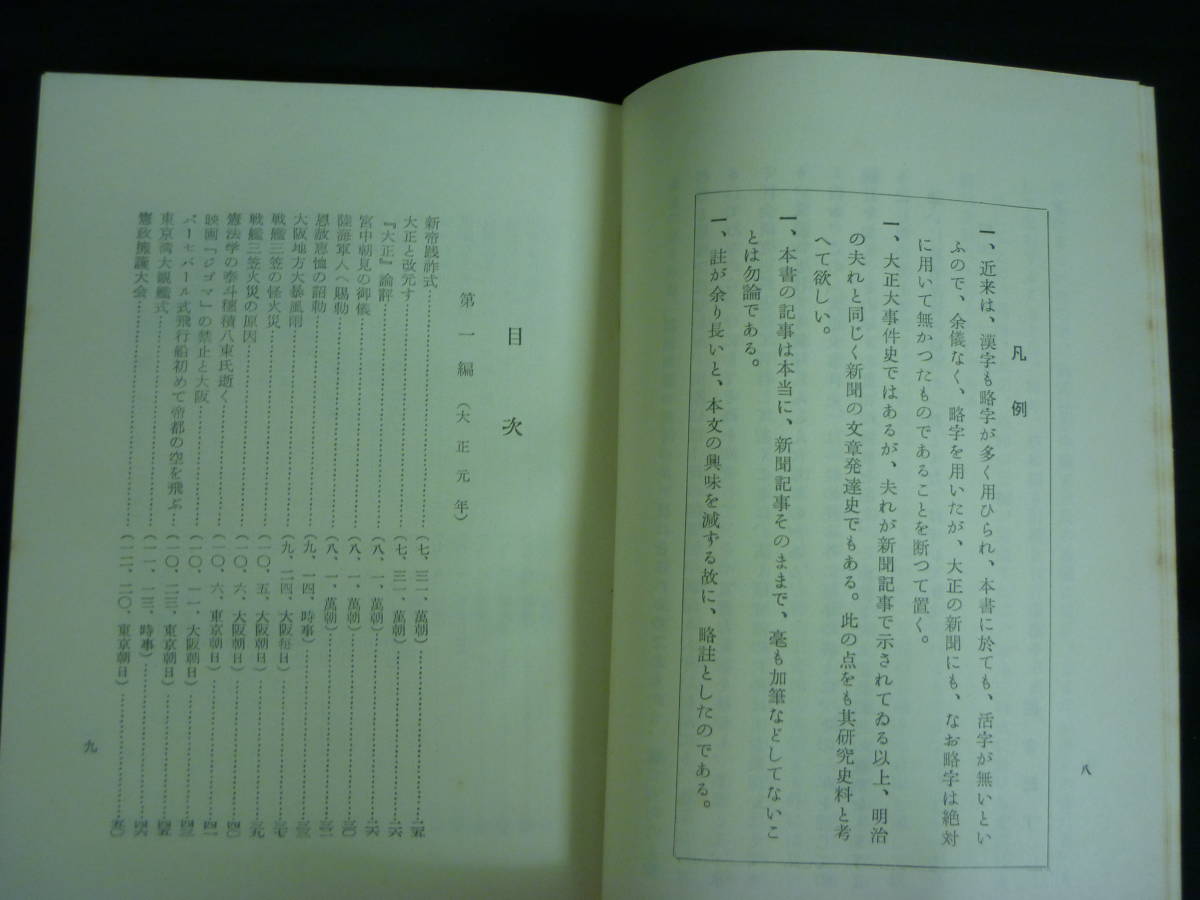 凡例
一、近来は、漢字も略字が多く用ひられ、本書に於ても、活字が無いとい
ふので、余儀なく、略字を用いたが、大正の新聞にも、なお略字は絶対
に用いて無かつたものであることを断つて置く。
一、大正大事件史ではあるが、夫れが新聞記事で示されてゐる以上、明治
の夫れと同じく新聞の文章発達史でもある。此の点をも其研究史料と考
へて欲しい。
一、本書の記事は本当に、新聞記事そのままで、毫も加筆などしてないこ
とは勿論である。
一、註が余り長いと、本文の興味を減ずる故に、略註としたのである。
八
目次
第一編（大正元年）
新帝践祚式……（七、三一、萬朝）……二五
大正と改元す……（七、三一、萬朝）……二六
『大正』論評……（八、一、萬朝）……二六
宮中朝見の御儀……（八、一、萬朝）……三〇
陸海軍人へ賜勅……（八、一、萬朝）……三二
恩赦恵恤の詔勅……（九、一四、時事）……三三
大阪地方大暴風雨……（九、二四、大阪毎日）……三七
戦艦三笠の怪火災……（一〇、五、大阪朝日）……三九
戦艦三笠火災の原因……（一〇、六、大阪朝日）……四〇
憲法学の泰斗穂積八束氏逝く……（一〇、六、東京朝日）……四一
映画「ジゴマ」の禁止と大阪……（一〇、一一、大阪朝日）……四三
パーセバール式飛行船初めて帝都の空を飛ぶ……（一〇、二三、東京朝日）……四五
東京湾大観艦式……（一一、一三、時事）……四六
憲政擁護大会……（一二、二〇、東京朝日）……五〇
九